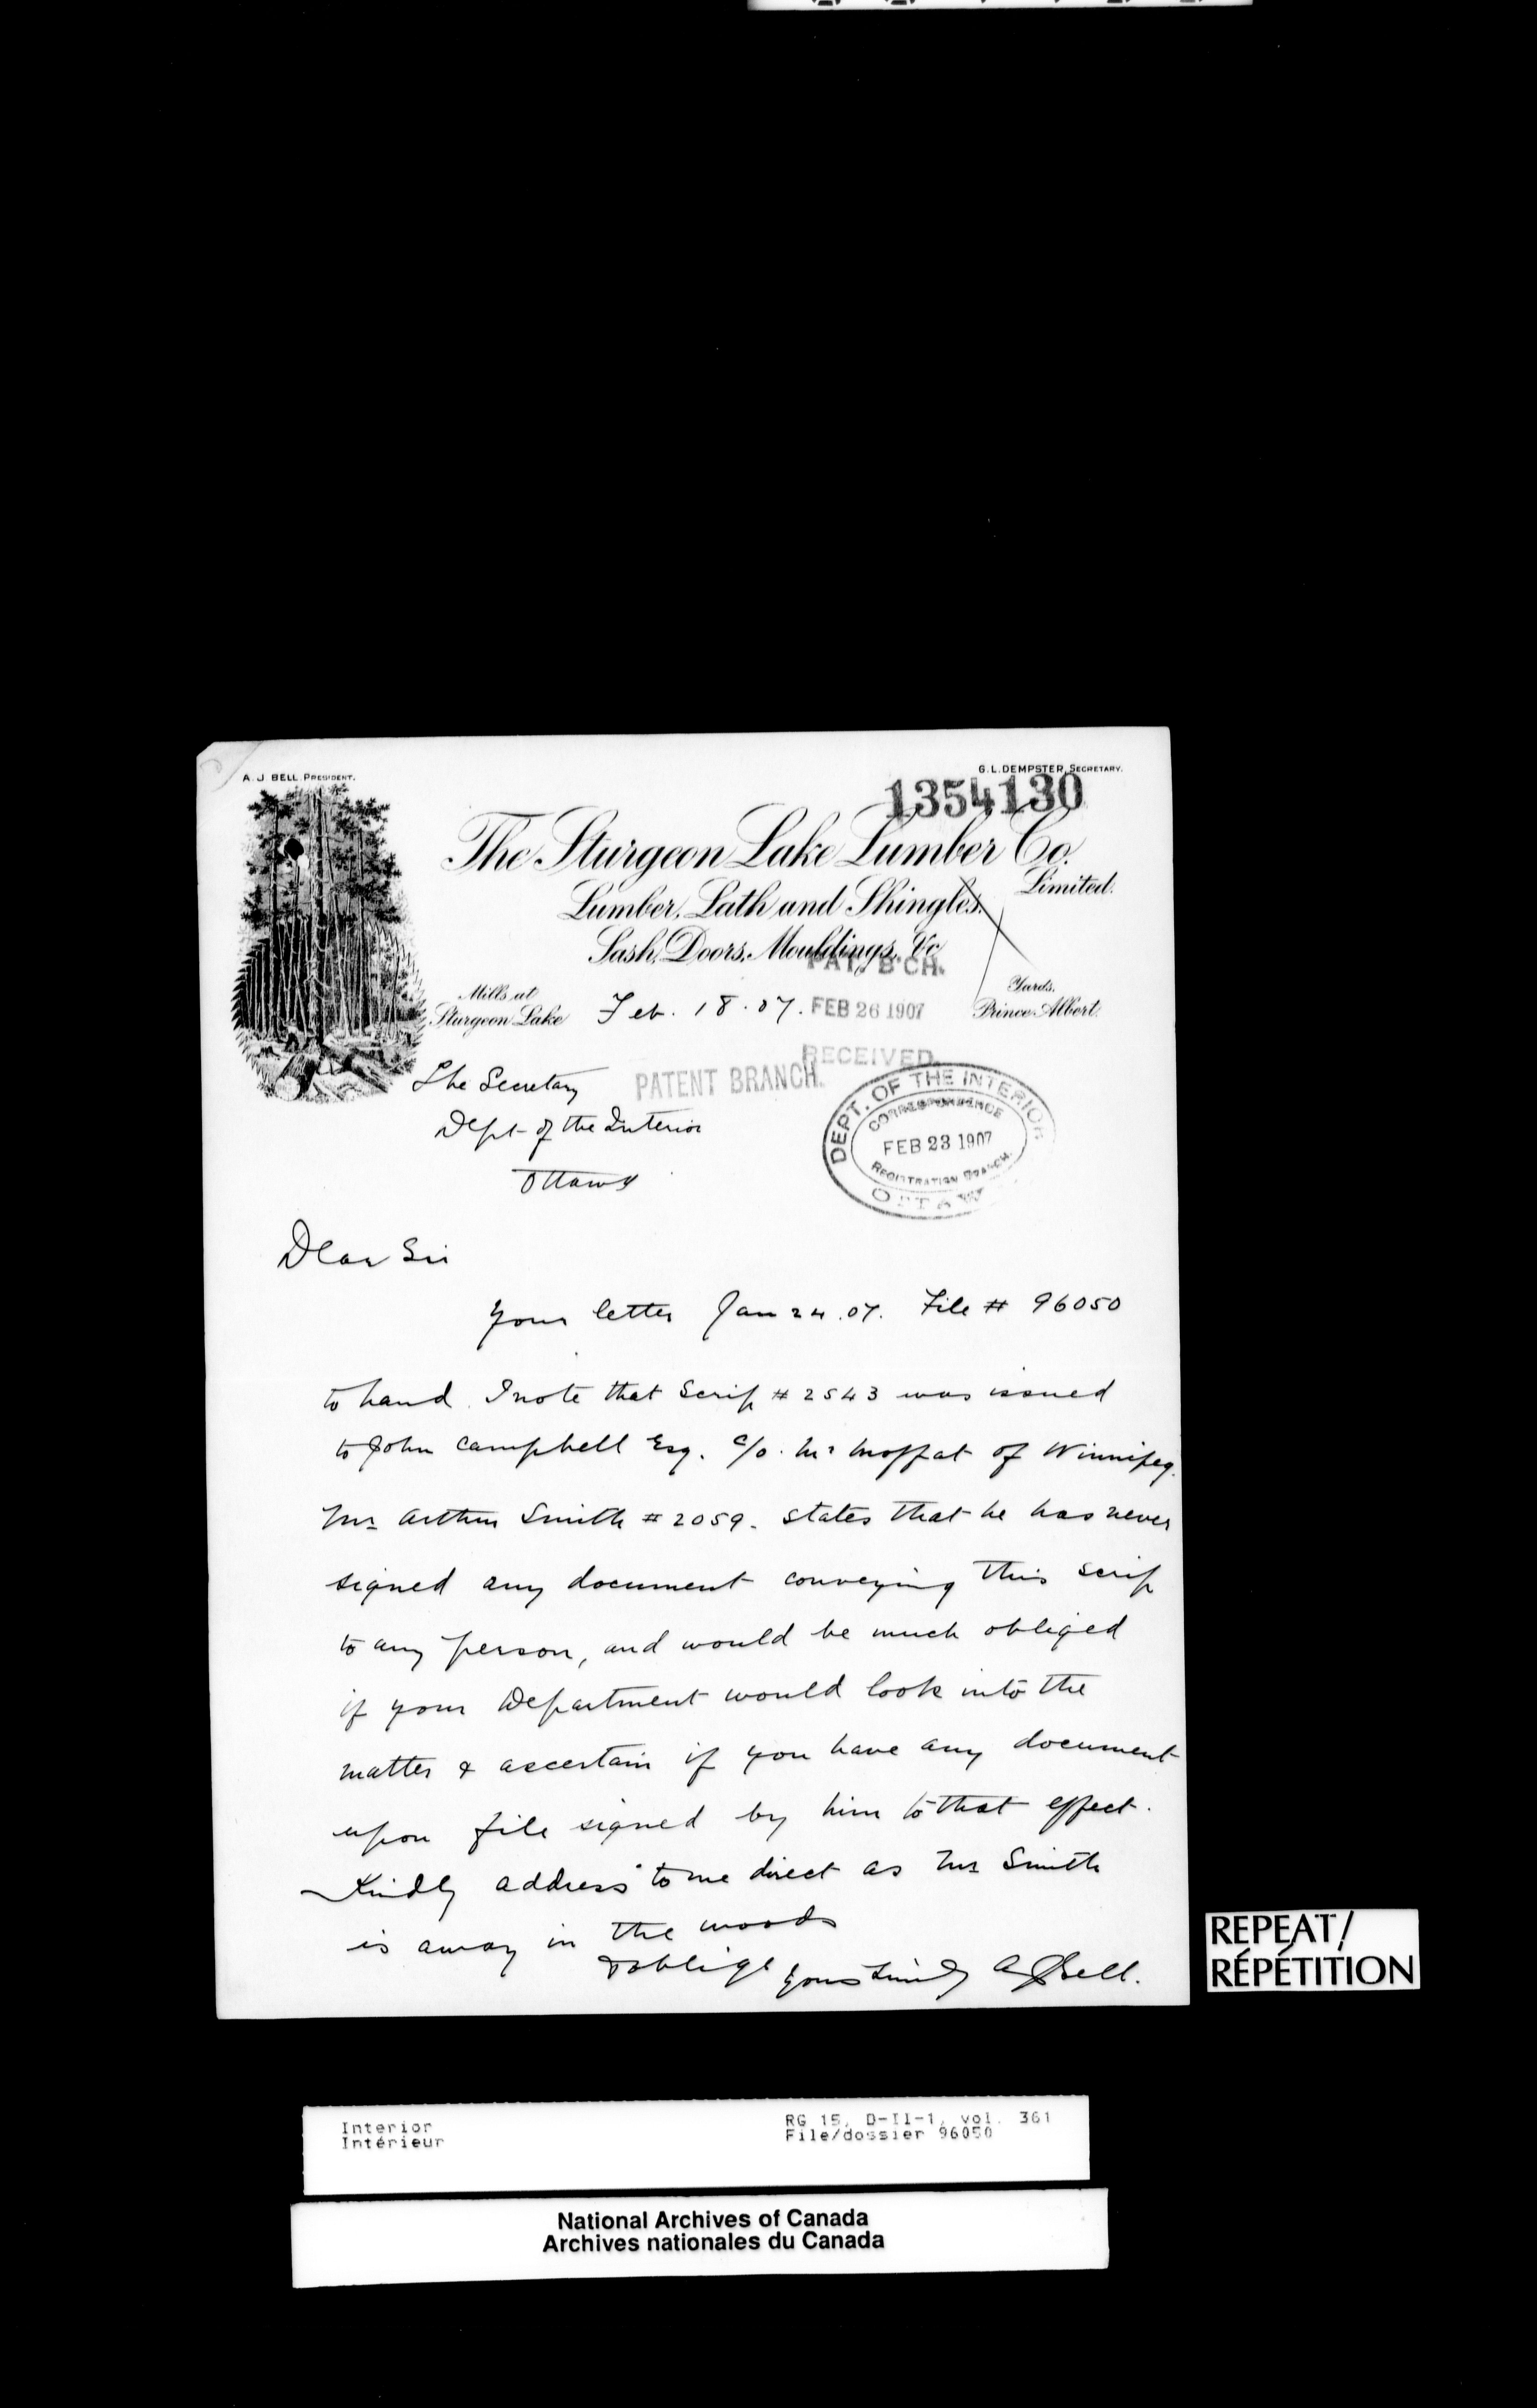 A. J. BELL. PRESIDENT.
G. L. DEMPSTER, SECRETARY.
1354130
The Sturgeon Lake Lumber Co.
Limited.
Lumber, Lath and Shingles.
Sash, Doors, Mouldings, &c
PAT. B'CH.
Mills at
Sturgeon Lake
Feb. 18. 07.
FEB 26 1907
Yards,
Prince Albert.
RECEIVED.
PATENT BRANCH.
The Secretary
Dept of the Interior
Ottawa
DEPT. OF THE INTERIOR
CORRESPONDENCE
FEB 23 1907
REGISTRATION BRANCH.
OTTAW
Dear Sir
Your letter Jan 24. 07. File # 96050
to hand. I note that Scrip # 2543 was issued
to John Campbell Esq. c/o. Mr Moffat of Winnipeg.
Mr Arthur Smith # 2059. states that he has never
signed any document conveying this scrip
to any person, and would be much obliged
if your Department would look into the
matter & ascertain if you have any document
upon file signed by him to that effect.
Kindly address to me direct as Mr Smith
is away in the woods
& oblige Yours truly A J Bell.
REPEAT/
RÉPÉTITION
Interior
Intérieur
RG 15, D-II-1, vol. 361
File/dossier 96050
National Archives of Canada
Archives nationales du Canada